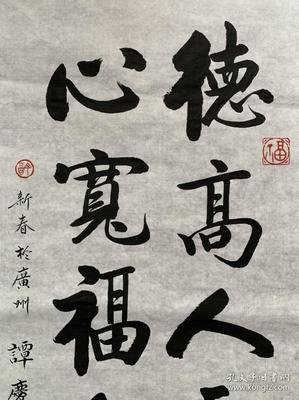 德高人
心寬福
新春於廣州 譚慶
福
孔夫子旧书网